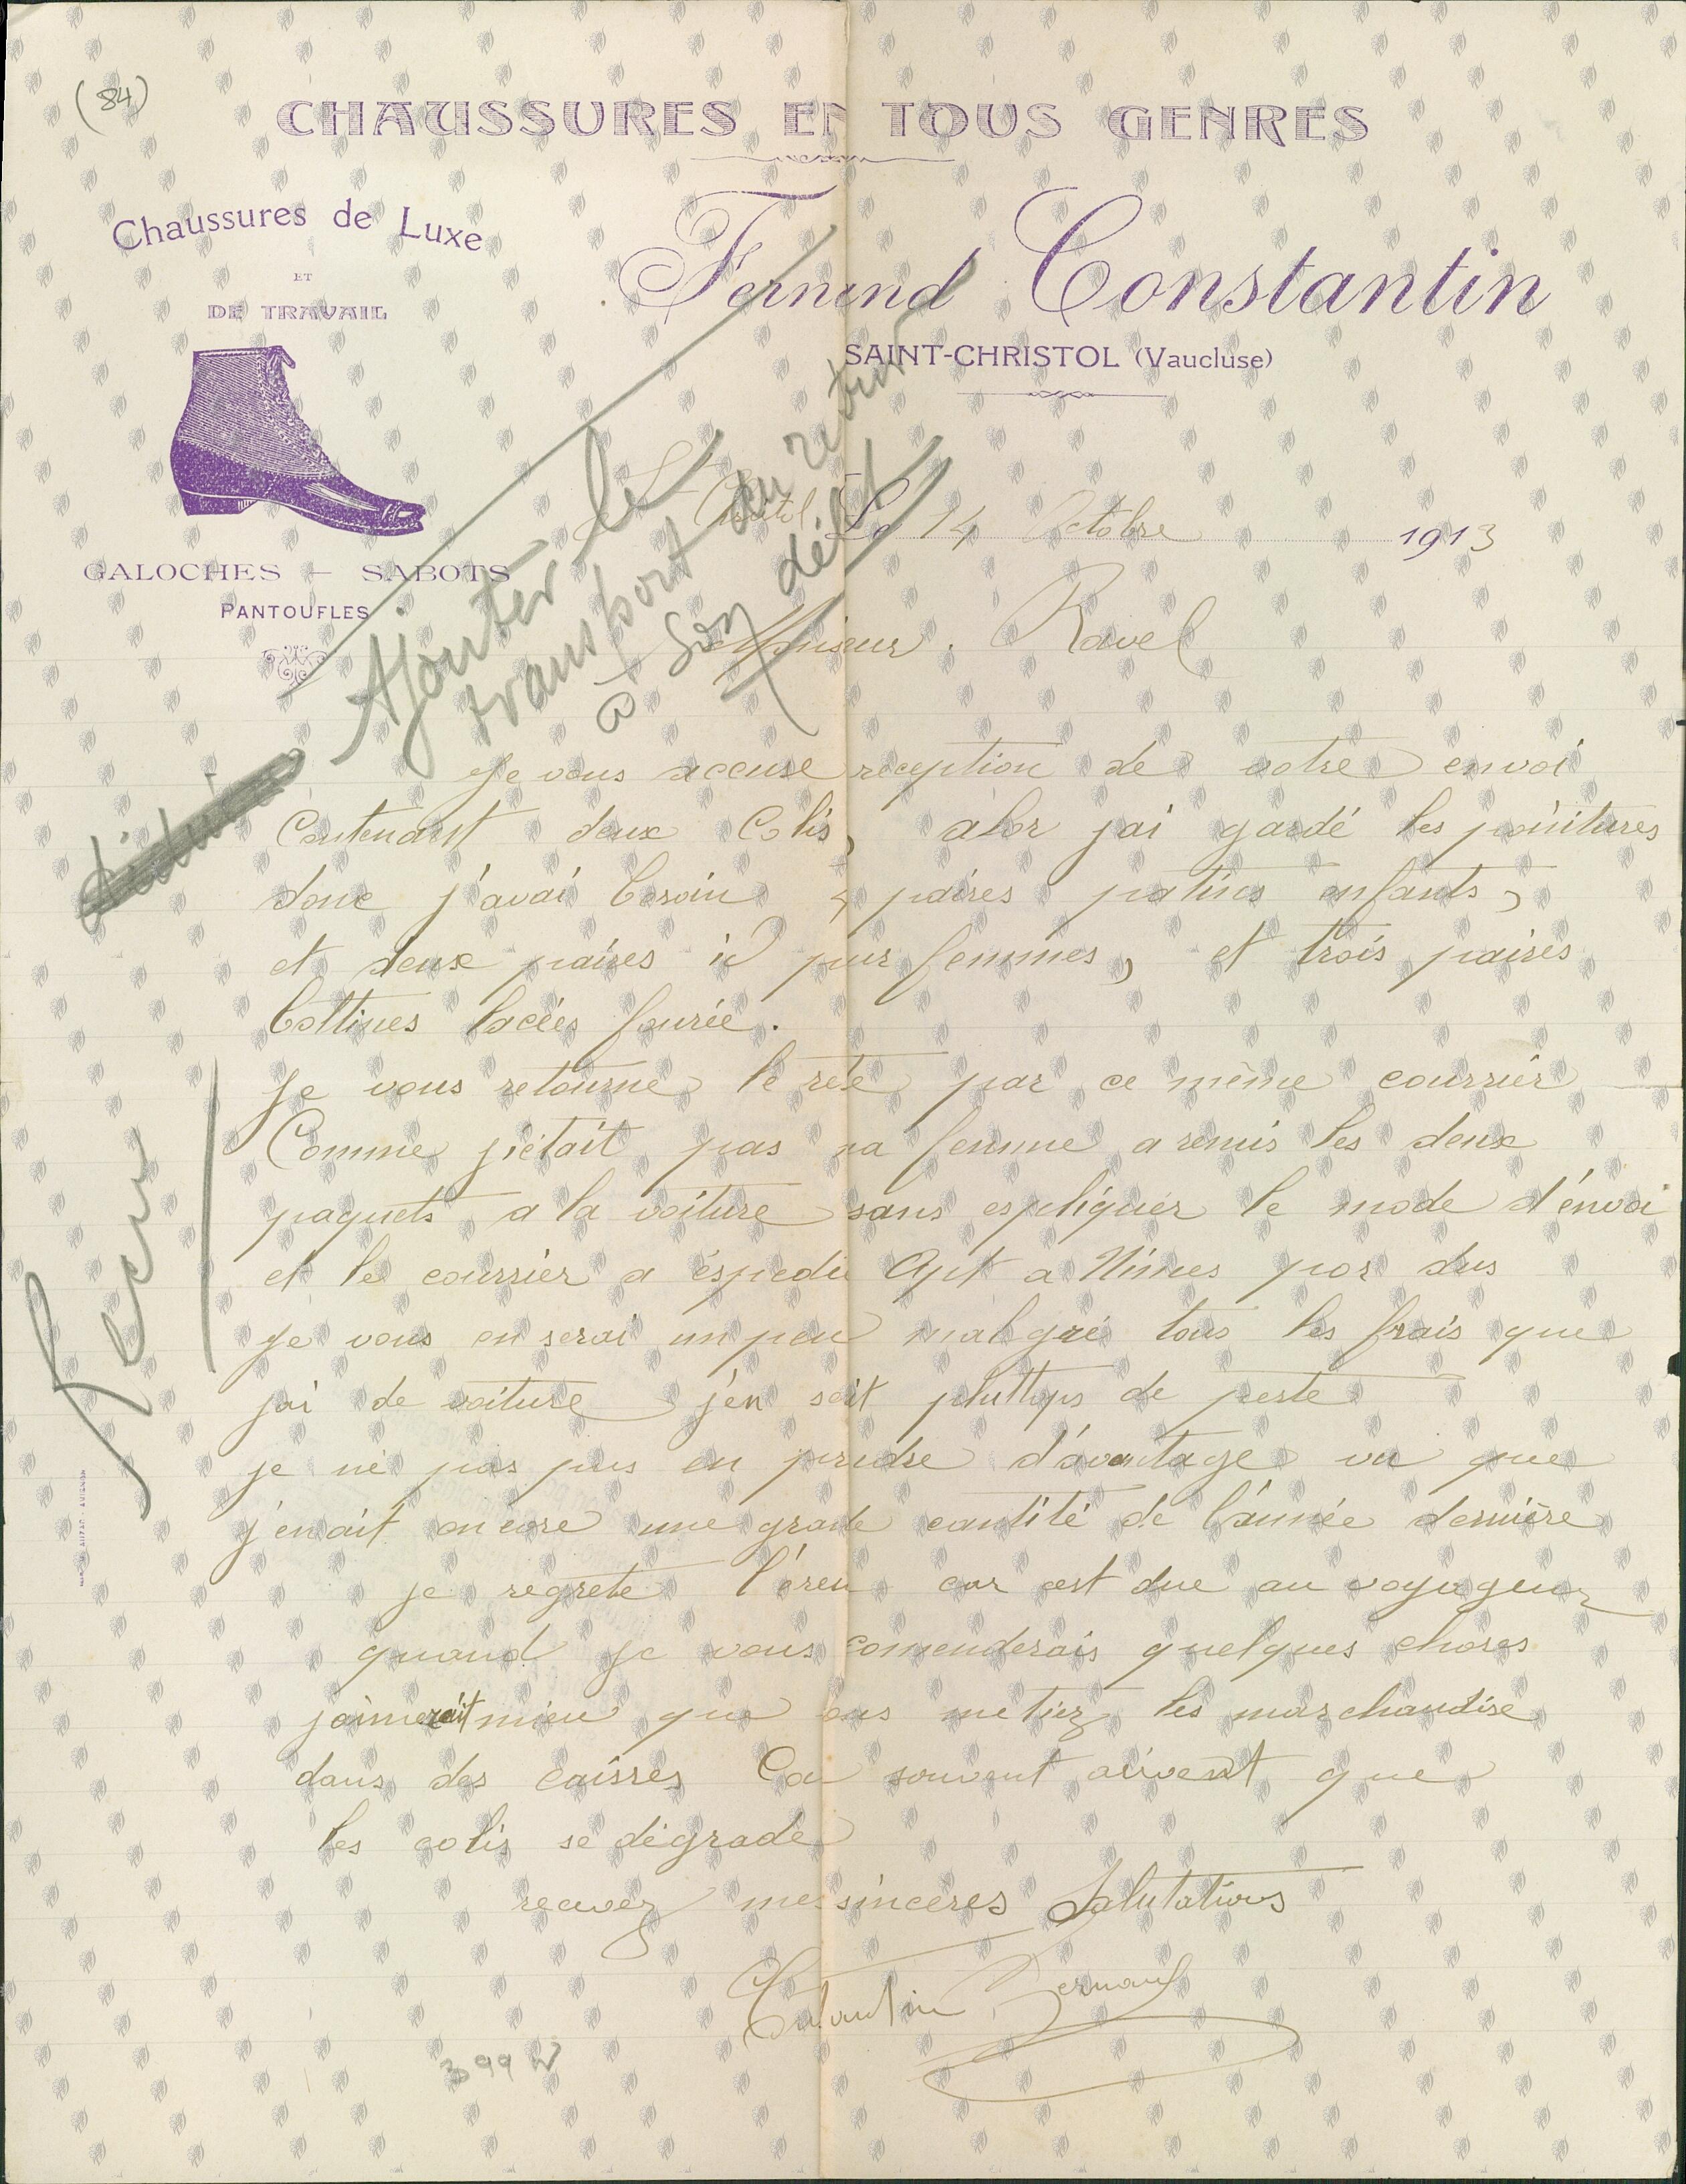 (84)
CHAUSSURES EN TOUS GENRES
Chaussures de Luxe
ET
DE TRAVAIL
GALOCHES — SABOTS
PANTOUFLES
Fernand Constantin
SAINT-CHRISTOL (Vaucluse)
St Christol Le 14 Octobre 1913
Ajouter le
transport du retour
à son débit
Monsieur . Ravel
Je vous accuse reception de votre envoi
Contenant deux Colis, alor jai gardé les pointures
donc j'avai besoin 4 paires patins enfants,
et deux paires id pur femmes, et trois paires
bottines lacées fourée.
Je vous retourne le reste par ce même courrier
Comme j'etait pas ma femme a remis les deux
paquets a la voiture sans espliquer le mode d'envoi
et le courrier a éspedié Apt a Nimes por dus
je vous en serai un peu malgré tous les frais que
jai de voiture j'en soit pluttops de perte
je né pas pus en prendre d'avantage vu que
j'en ait encore une grande cantité de l'année dernière
je regrete l'éreu car cest due au voyageur
quand je vous comenderais quelques choses
jaimerait mieu que vous metiez les marchandise
dans des caisses Ca souvent arivent que
les colis se dégrade
recevez mes sinceres Salutations
Constantin Fernand
399